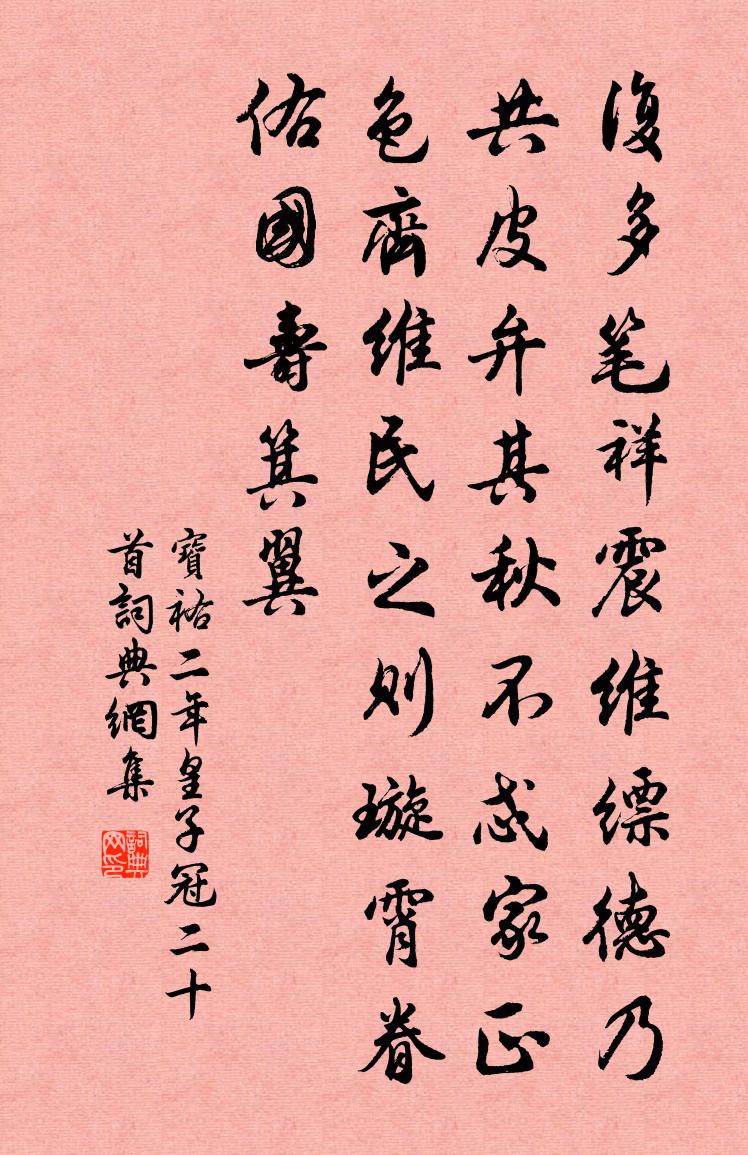 復多笔祥震維縹德乃
共皮弁其秋不忒家正
色齊維民之則璇霄眷
佑國壽箕翼
寶祐二年皇子冠二十
首詞典網集
詞典网印